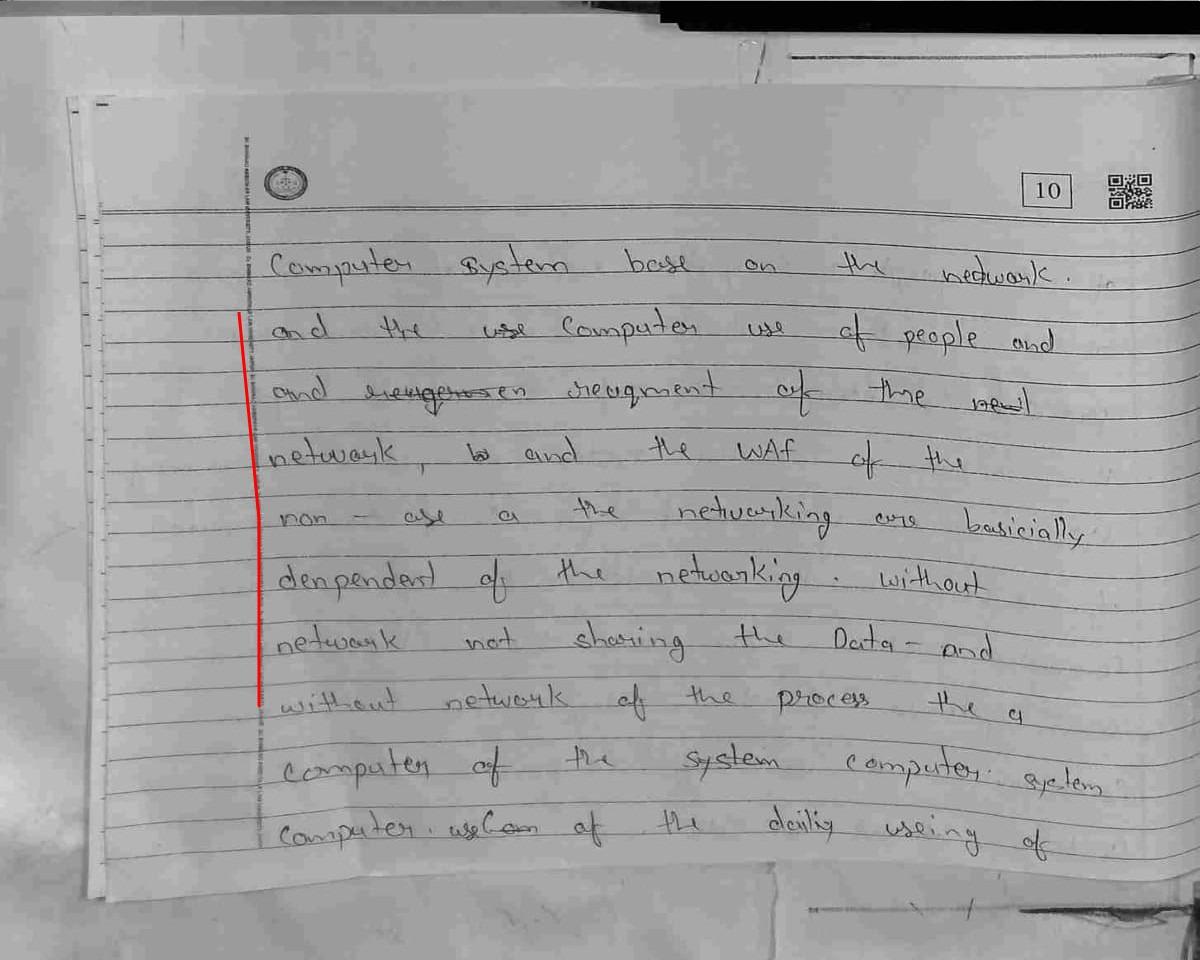 10
Computer system base on the nedwark.
and the use Computer use of people and
and reuqment of the
network, and the WAf of the
non - ase a the netwarking are basicially
denpendent of the netwarking. without
netwark not sharing the Data - and
without network of the process the a
computer of the system computer. system
computer. of the useing of